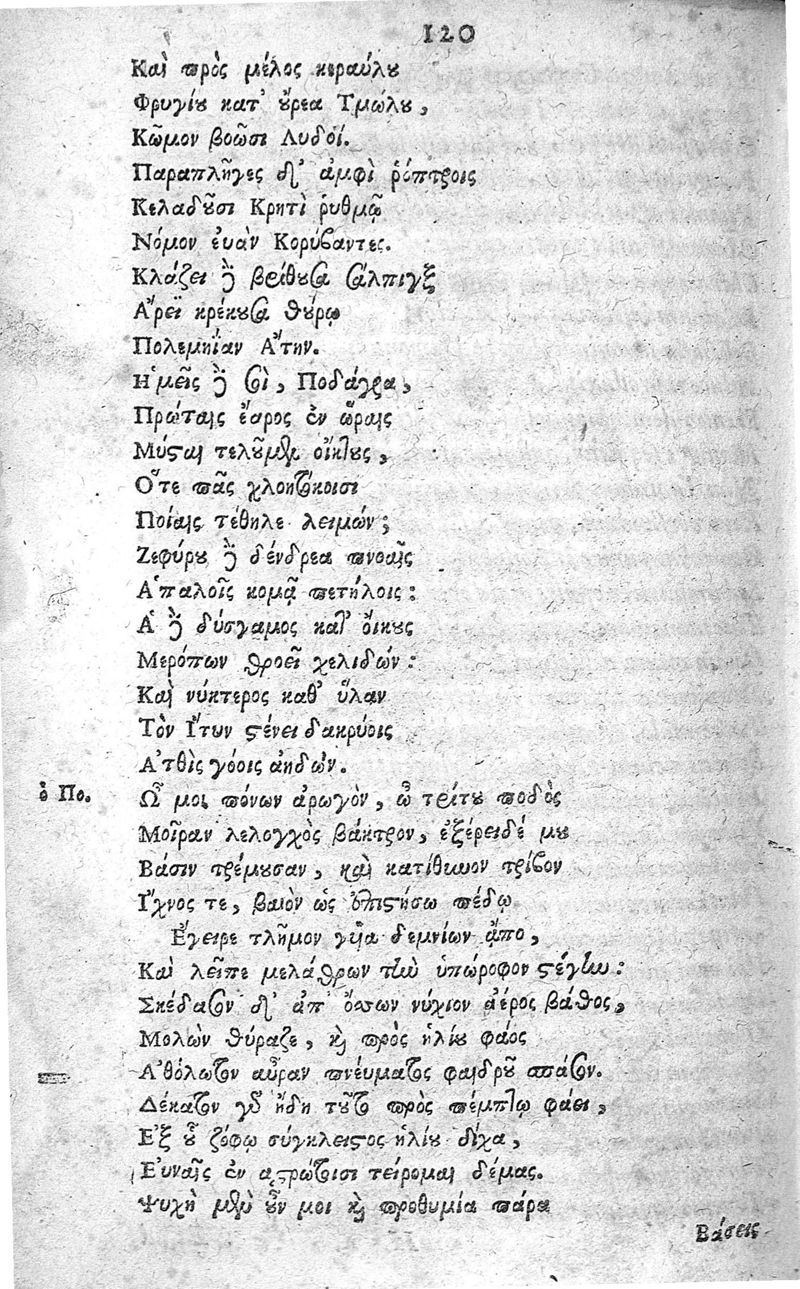 120
Καὶ πρὸς μέλος κεραύλου
Φρυγίου κατ' οὔρεα Τμώλου,
Κῶμον βοῶσι Λυδοί.
Παραπλῆγες δ' ἀμφὶ ῥόπτροις
Κελαδοῦσι Κρητὶ ῥυθμῷ
Νόμον εὐὰν Κορύβαντες.
Κλάζει δὲ βρίθουσα σάλπιγξ
Ἄρεϊ κρέκουσα θύρῳ
Πολεμηΐαν Ἄτην.
Ἡμεῖς δὲ σοὶ, Ποδάγρα,
Πρώταις ἔαρος ἐν ὥραις
Μύσται τελοῦμεν οἴκτους,
Ὅτε πᾶς χλοητόκοισι
Ποίαις τέθηλε λειμών;
Ζεφύρου δὲ δένδρεα πνοαῖς
Ἁπαλοῖς κομᾷ πετήλοις:
Ἁ δὲ δύσγαμος κατ' οἴκους
Μερόπων θροεῖ χελιδών:
Καὶ νύκτερος καθ' ὕλαν
Τὸν Ἴτυν στένει δακρύοις
Ἀτθὶς γόοις ἀηδών.
ὁ Πο. Ὤ μοι πόνων ἀρωγὸν, ὦ τρίτου ποδὸς
Μοῖραν λελογχὸς βάκτρον, ἐξέρειδέ μου
Βάσιν τρέμουσαν, καὶ κατίθυνον τρίβον
Ἴχνος τε, βαιὸν ὡς ἐπιστήσω πέδῳ.
Ἔγειρε τλῆμον γυῖα δεμνίων ἄπο,
Καὶ λεῖπε μελάθρων τὴν ὑπώροφον στέγην:
Σκέδασον δ' ἀπ' ὄσσων νύχιον ἀέρος βάθος,
Μολὼν θύραζε, καὶ πρὸς ἡλίου φάος
Ἀθόλωτον αὖραν πνεύματος φαιδροῦ σπάσον.
Δέκατον γὰρ ἤδη τοῦτο πρὸς πέμπτῳ φάει,
Ἐξ οὗ ζόφῳ σύγκλειστος ἡλίου δίχα,
Εὐναῖς ἐν ἀστρώτοισι τείρομαι δέμας.
Ψυχὴ μὲν οὖν μοι καὶ προθυμία πάρα
Βάσεις